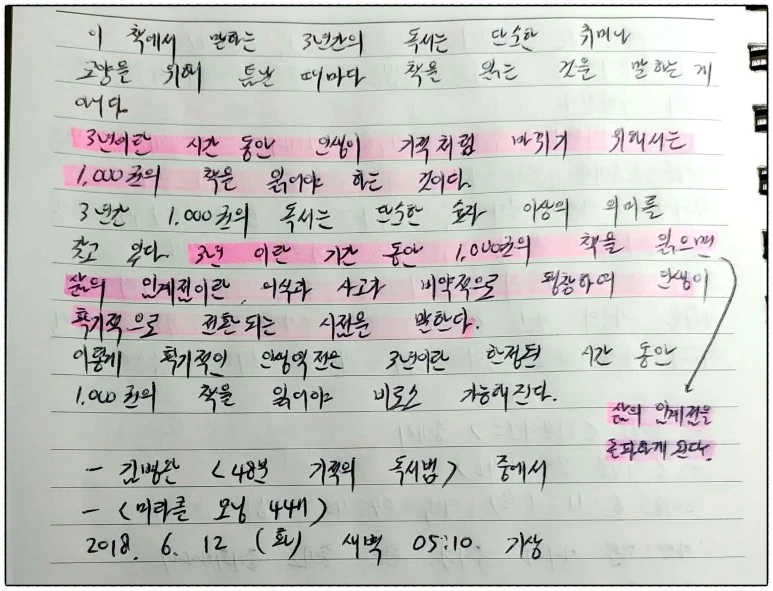 이 책에서 말하는 3년간의 독서는 단순한 취미나
교양을 위해 틈날 때마다 책을 읽는 것을 말하는 게
아니다.
3년이란 시간 동안 인생이 기적처럼 바뀌기 위해서는
1,000권의 책을 읽어야 하는 것이다.
3년간 1,000권의 독서는 단순한 효과 이상의 의미를
갖고 있다. 3년 이란 기간 동안 1,000권의 책을 읽으면
삶의 임계점이란, 의식과 사고가 비약적으로 팽창하여 인생이
획기적으로 전환되는 시점을 말한다.
이렇게 획기적인 인생역전은 3년이란 한정된 시간 동안
1,000권의 책을 읽어야 비로소 가능해진다.
삶의 임계점을
돌파하게 된다.
- 김병완 <48분 기적의 독서법> 중에서
- <미라클 모닝 44일>
2018. 6. 12 (화) 새벽 05:10. 기상